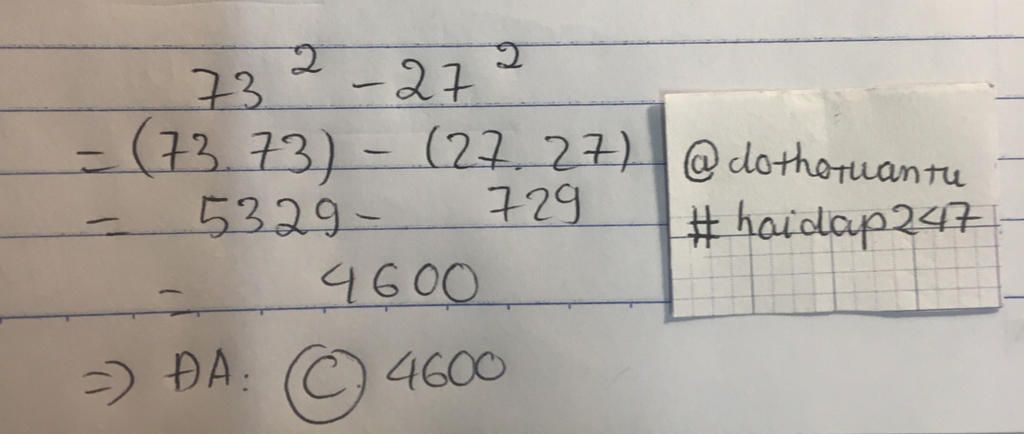 73² - 27²
= (73.73) - (27.27)
= 5329 - 729
= 4600
=> ĐA: C. 4600
@dothotuantu
#haidap247